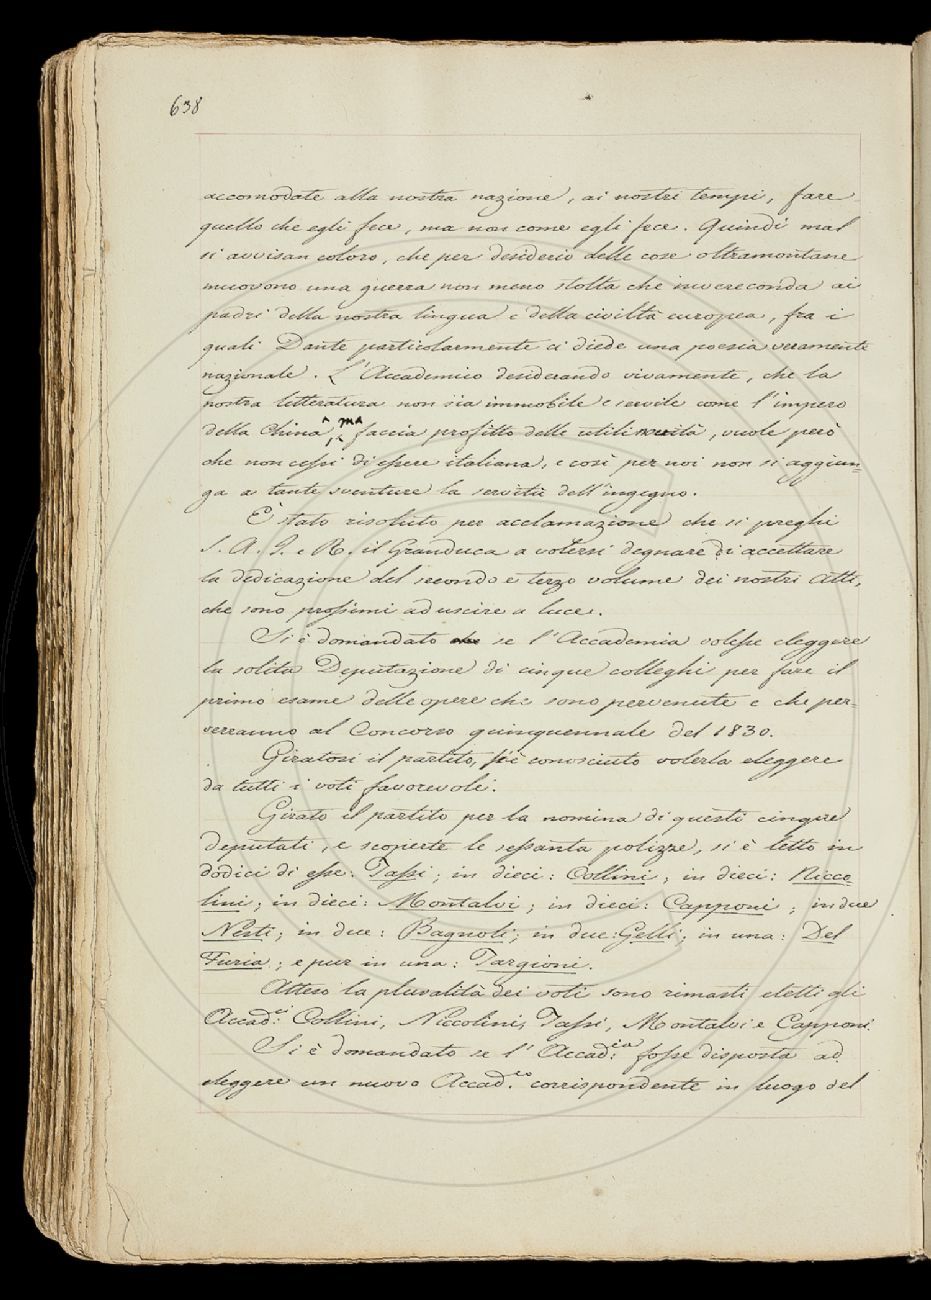 638
accomodate alla nostra nazione, ai nostri tempi, fare
quello che egli fece, ma non come egli fece. Quindi mal
si avvisan coloro, che per desiderio delle cose oltramontane
muovono una guerra non meno stolta che invereconda ai
padri della nostra lingua e della civiltà europea, fra i
quali Dante particolarmente ci diede una poesia veramente
nazionale. L'Accademico desiderando vivamente, che la
nostra letteratura non sia immobile e servile come l'impero
della China, ma faccia profitto delle utili novità, vuole però
che non cessi di essere italiana, e così per noi non si aggiun=
ga a tante sventure la servitù dell'ingegno.
È stato risoluto per acclamazione che si preghi
S. A. I. e R. il Granduca a volersi degnare di accettare
la dedicazione del secondo e terzo volume dei nostri Atti,
che sono prossimi ad uscire a luce.
Si è domandato se l'Accademia volesse eleggere
la solita Deputazione di cinque colleghi per fare il
primo esame delle opere che sono pervenute e che per=
verranno al Concorso quinquennale del 1830.
Giratosi il partito, s'è conosciuto volerla eleggere
da tutti i voti favorevoli.
Girato il partito per la nomina di questi cinque
deputati, e scoperte le sessanta polizze, si è letto in
dodici di esse: Tassi; in dieci: Collini; in dieci: Nicco
lini; in dieci: Montalvi; in dieci: Capponi; in due
Nesti; in due: Bagnoli; in due: Gelli; in una: Del
Furia; e pur in una: Targioni.
Atteso la pluralità dei voti sono rimasti eletti gli
Accad.ci Collini, Niccolini, Tassi, Montalvi e Capponi.
Si è domandato se l'Accad.ia fosse disposta ad
eleggere un nuovo Accad.co corrispondente in luogo del